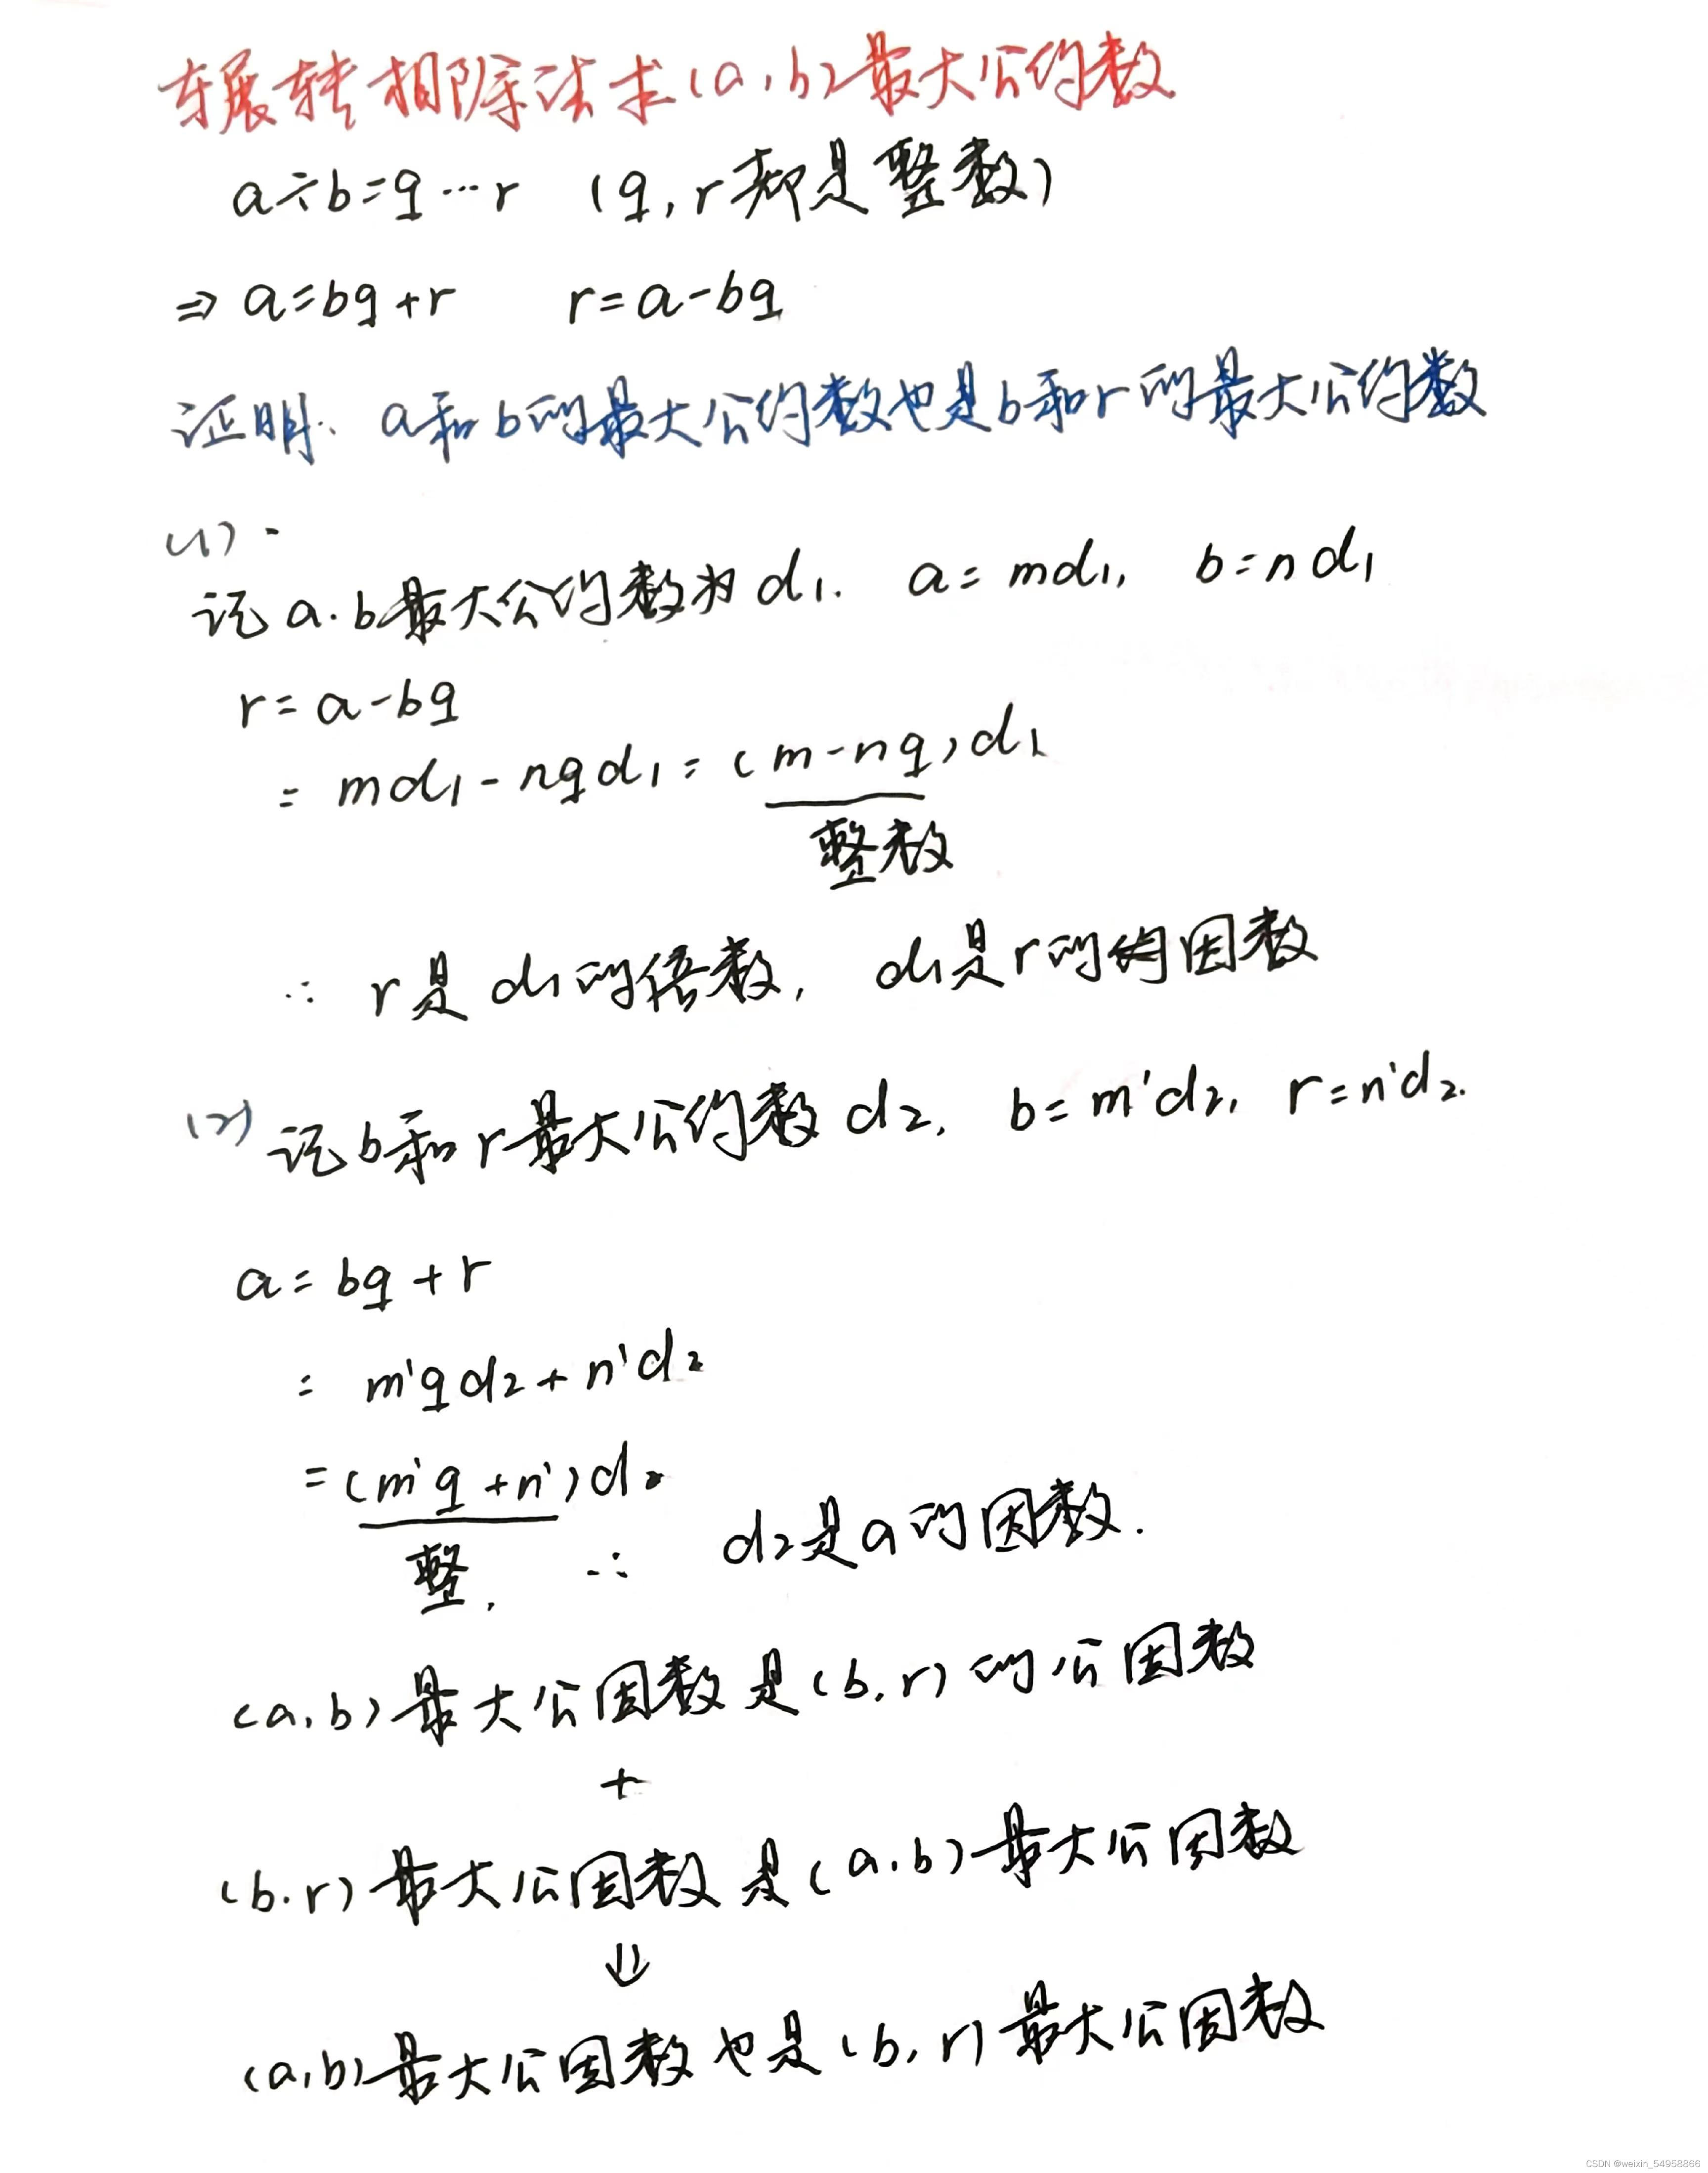 辗转相除法求(a,b)最大公约数
a÷b=q…r (q,r都是整数)
⇒ a=bq+r r=a-bq
证明: a和b的最大公约数也是b和r的最大公约数
(1).
记a.b最大公约数为d₁. a=md₁, b=nd₁
r=a-bq
=md₁-nqd₁=(m-nq)d₁
整数
∴ r是d₁的倍数, d₁是r的因数
(2) 记b和r最大公约数d₂, b=m'd₂, r=n'd₂.
a=bq+r
=m'qd₂+n'd₂
=(m'q+n')d₂
整. ∴ d₂是a的因数.
(a,b)最大公因数是(b,r)的公因数
+
(b.r)最大公因数是(a.b)最大公因数
⇓
(a,b)最大公因数也是(b,r)最大公因数
CSDN @weixin_54958866